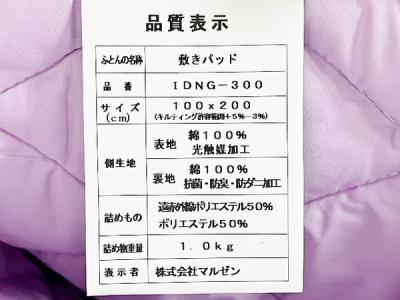 品質表示
ふとんの名称 敷きパッド
品番 IDNG-300
サイズ 100x200
(cm) (キルティング許容範囲+5%-3%)
側生地 表地 綿100%
光触媒加工
裏地 綿100%
抗菌・防臭・防ダニ加工
詰めもの 遠赤外綿ポリエステル50%
ポリエステル50%
詰め物重量 1.0kg
表示者 株式会社マルゼン